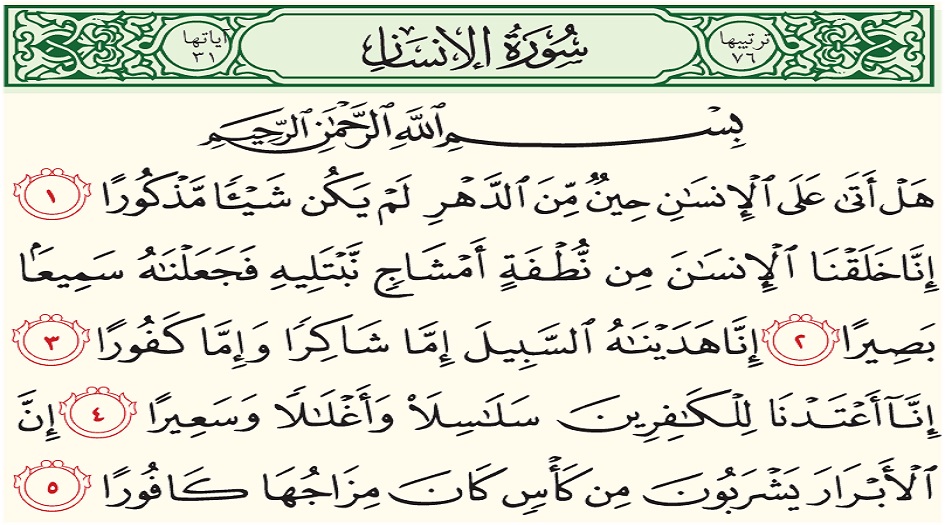 ترتيبها ٧٦ سُورَةُ الإِنسَانِ آياتها ٣١
بِسْمِ ٱللَّهِ ٱلرَّحْمَٰنِ ٱلرَّحِيمِ
هَلْ أَتَىٰ عَلَى ٱلْإِنسَٰنِ حِينٌ مِّنَ ٱلدَّهْرِ لَمْ يَكُن شَيْـًٔا مَّذْكُورًا ١
إِنَّا خَلَقْنَا ٱلْإِنسَٰنَ مِن نُّطْفَةٍ أَمْشَاجٍ نَّبْتَلِيهِ فَجَعَلْنَٰهُ سَمِيعًۢا
بَصِيرًا ٢ إِنَّا هَدَيْنَٰهُ ٱلسَّبِيلَ إِمَّا شَاكِرًا وَإِمَّا كَفُورًا ٣
إِنَّآ أَعْتَدْنَا لِلْكَٰفِرِينَ سَلَٰسِلَا۟ وَأَغْلَٰلًا وَسَعِيرًا ٤ إِنَّ
ٱلْأَبْرَارَ يَشْرَبُونَ مِن كَأْسٍ كَانَ مِزَاجُهَا كَافُورًا ٥